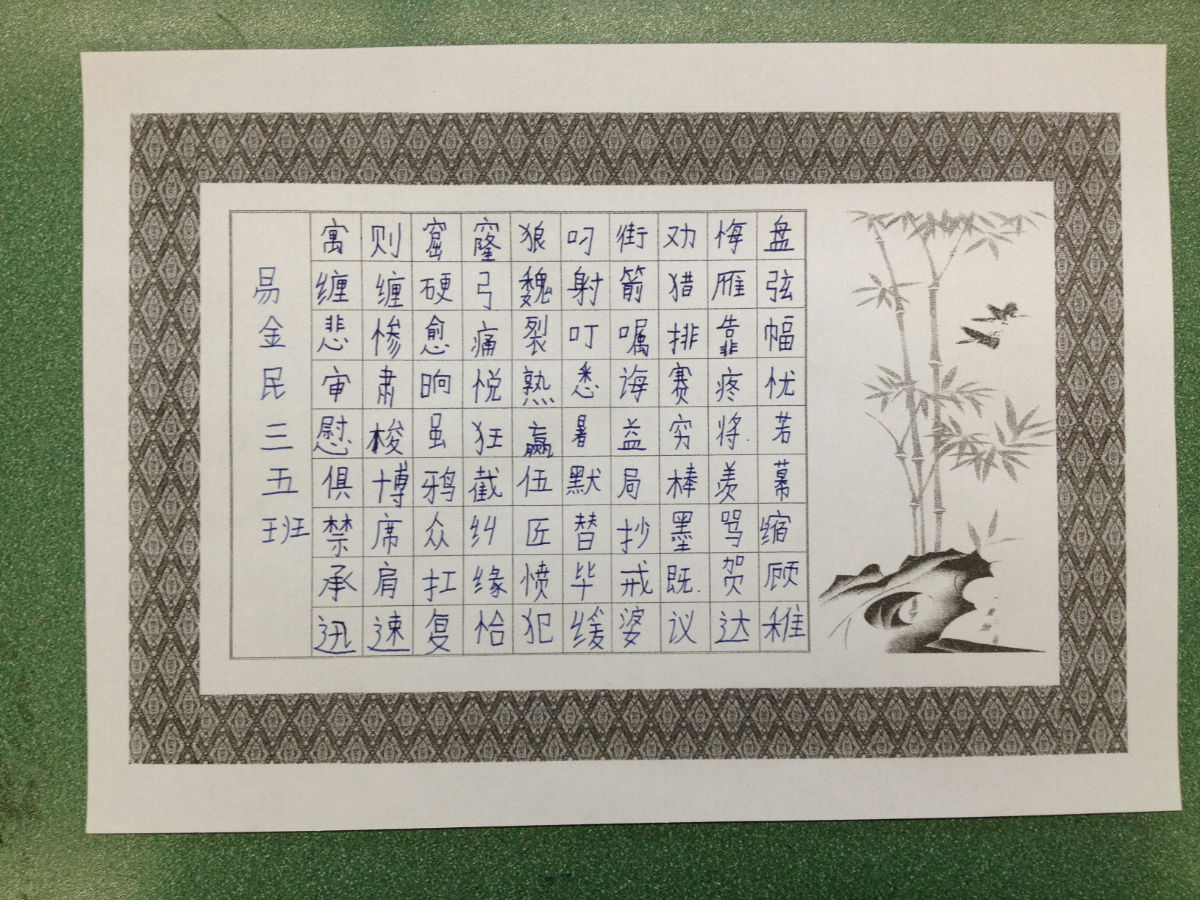 易金民三五班
寓则窟窿狼叼街劝悔盘
缠缠硬弓魏射箭猎雁弦
悲惨愈痛裂叮嘱排靠幅
审肃晌悦熟悉诲赛疼忧
慰梭虽狂赢暑益穷将若
俱博鸦截伍默局棒羡幕
禁席众纠匠替抄墨骂缩
承肩扛缘愤毕戒既贺顾
迅速复恰犯缓婆议达稚